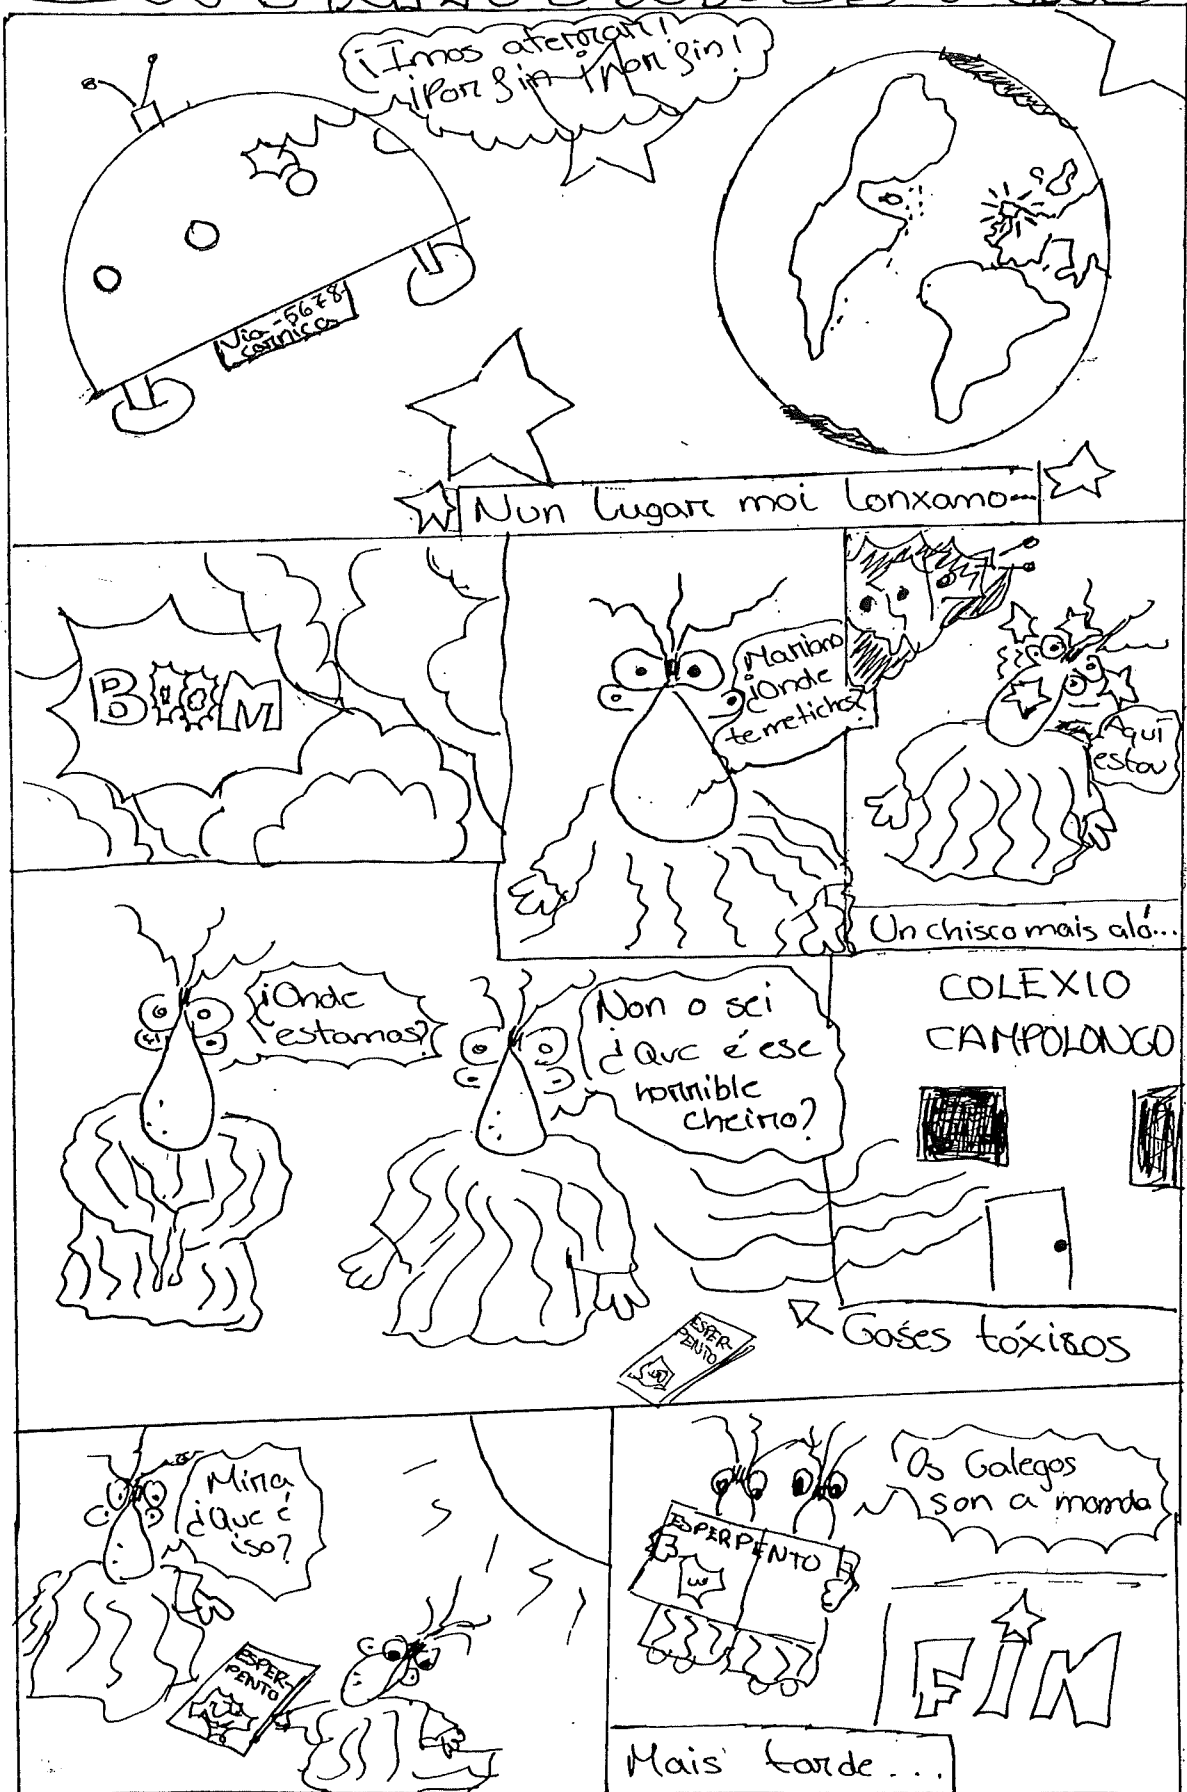 ¡Imos aterrar!
¡Por fin ¡Por fin!
Via-5678-
carnica
Nun lugar moi lonxano...
BOOM
Mariano
¿Onde
te metiches?
Aquí
estou
Un chisco mais aló...
¿Onde
estamos?
Non o sei
¿Que é ese
horrible
cheiro?
COLEXIO
CAMPOLONGO
Gases tóxicos
ESPER-
PENTO
Mira
¿Que é
iso?
ESPER-
PENTO
ESPERPENTO
3
Os Galegos
son a monda
FIN
Mais tarde...